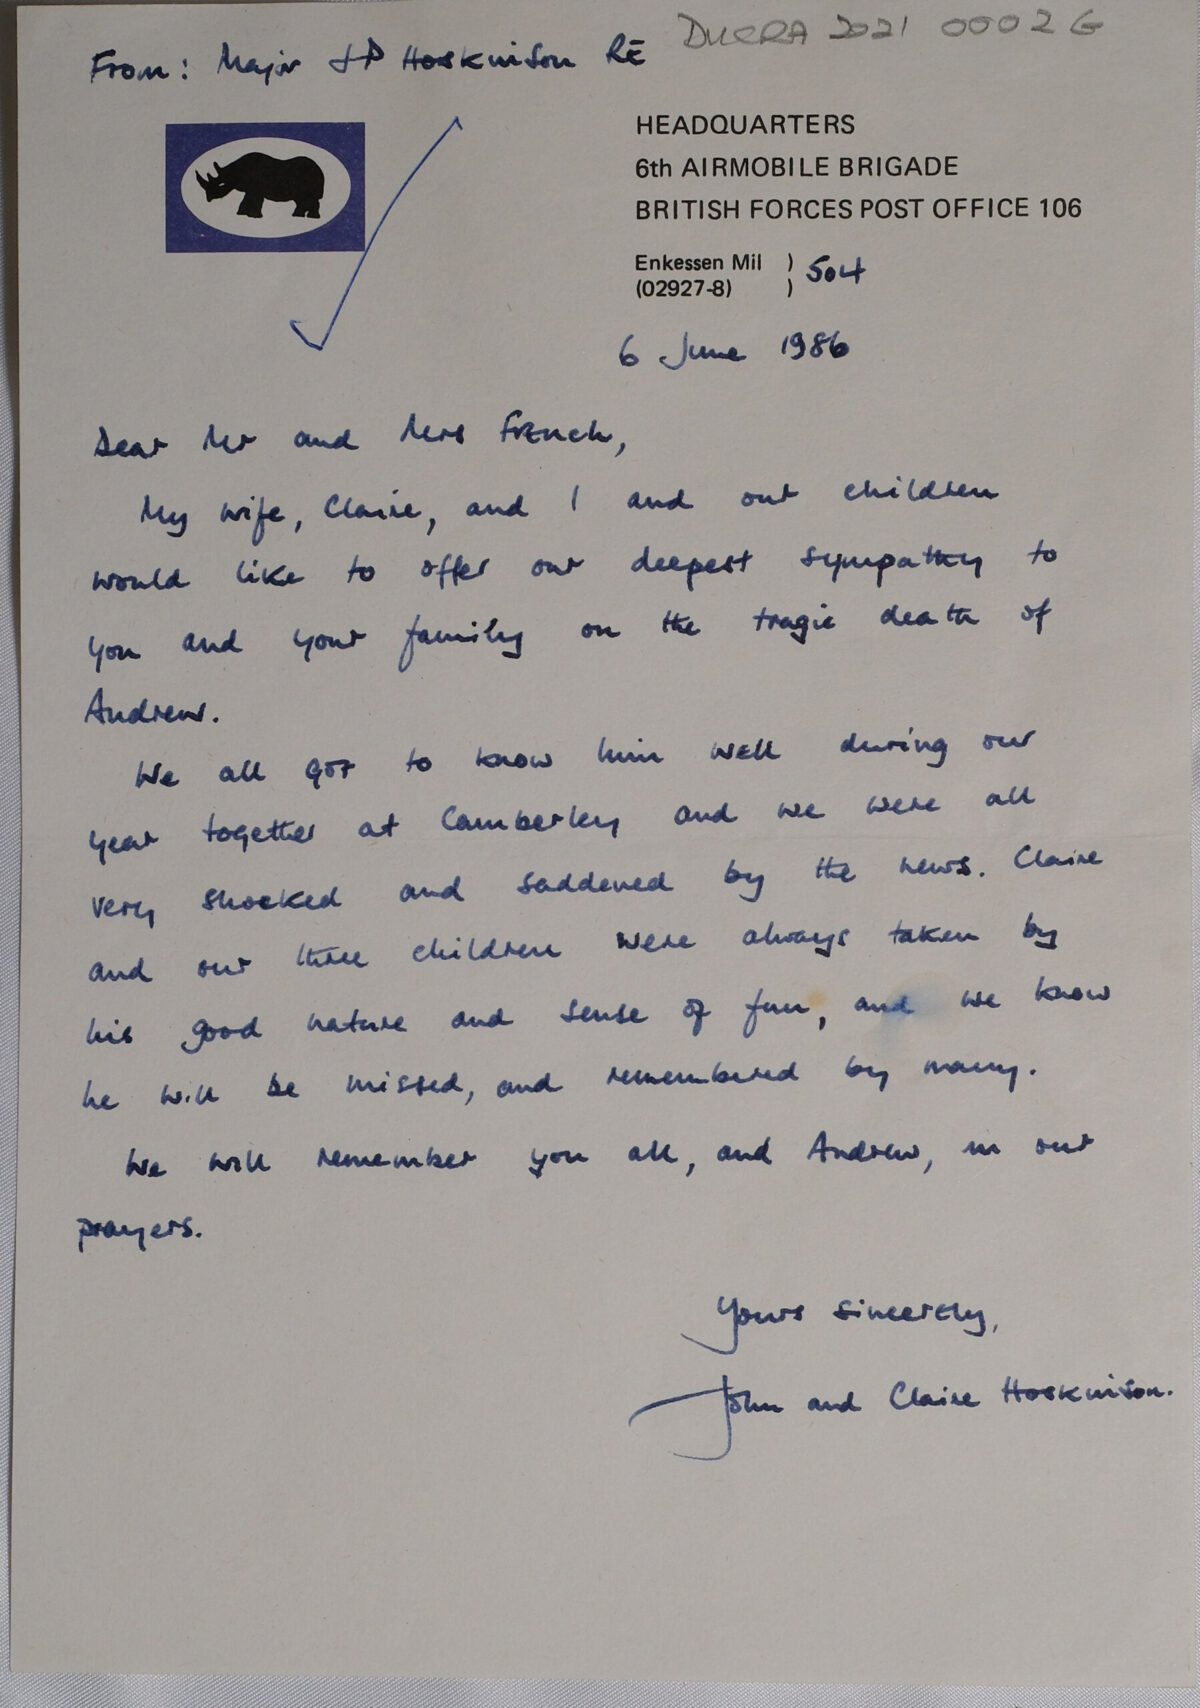 DUCRA 2021 0002 G
From: Major JP Hoskinson RE
HEADQUARTERS
6th AIRMOBILE BRIGADE
BRITISH FORCES POST OFFICE 106
Enkessen Mil ) 504
(02927-8) )
6 June 1986
Dear Mr and Mrs French,
My wife, Claire, and I and our children
would like to offer our deepest sympathy to
you and your family on the tragic death of
Andrew.
We all got to know him well during our
year together at Camberley and we were all
very shocked and saddened by the news. Claire
and our three children were always taken by
his good nature and sense of fun, and we know
he will be missed, and remembered by many.
We will remember you all, and Andrew, in our
prayers.
Yours sincerely,
John and Claire Hoskinson.